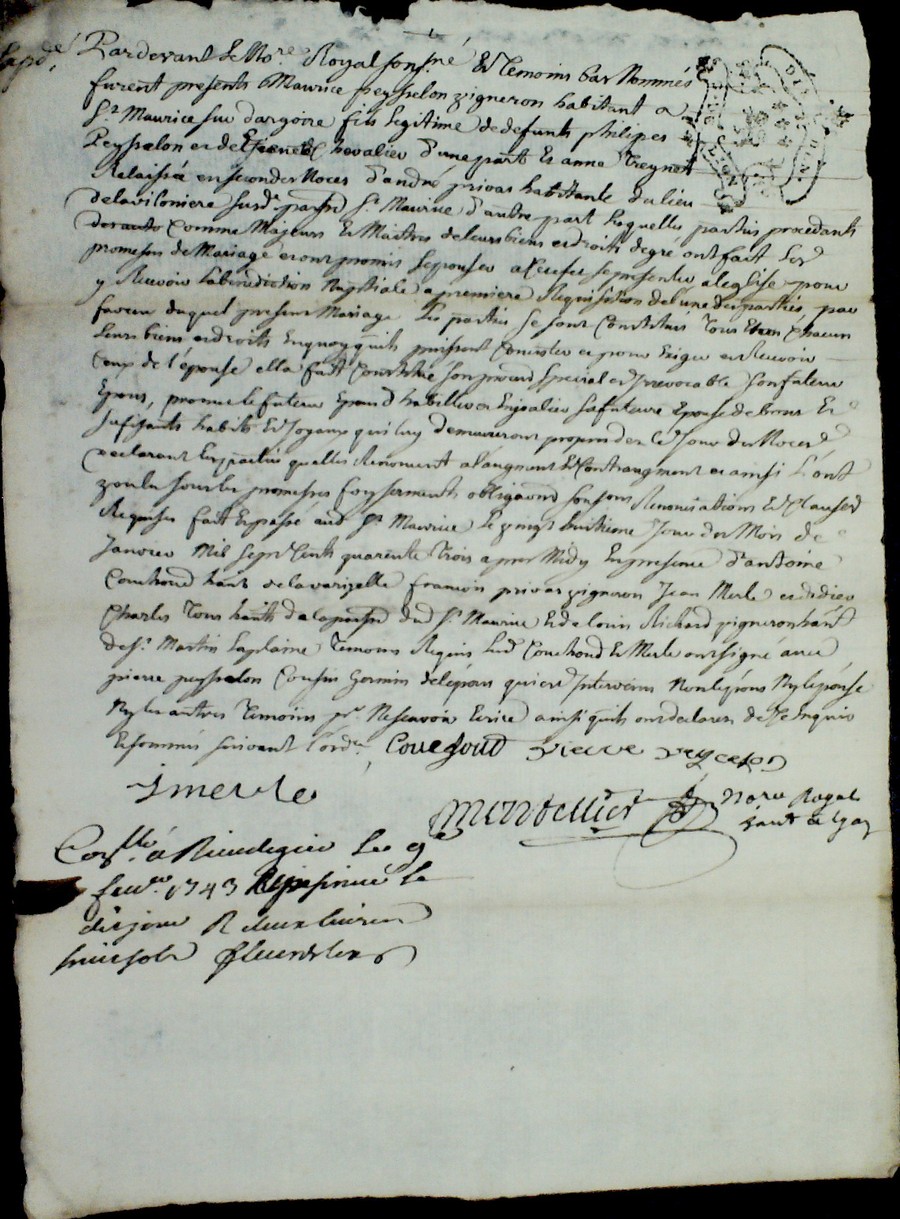 Expéd.
Pardevant Le No.re Royal sous.né Et Temoins bas Nommés
furent presents Maurice peysselon vigneron habitant a
S.t Maurice sur dargoire fils legitime de defunts philipes
Peysselon et de Chevalier d'une part Et anne Treynet
Relaissée en secondes Noces d'andré privas habitante du lieu
delaviloniere susd. parsse S.t Maurice d'autre part Lesquelles parties procedants
Comme Majeurs & Maitres de leurs biens et droits degré ont fait Les
promesses de Mariage et ont promis s'epouser a se presenter a l'eglise pour
y Recevoir la benediction Nuptiale a premiere Requisition de l'une des parties, par
faveur duquel present Mariage Les parties se sont Constitués Tous Chacun
Leurs biens et droits Enquoy quils puissent Consister et pour Exiger et Recevoir
Ceux de l'épouse ella fait Constitué son procur special et irrevocable son futeur
Epoux, promet le futeur Epoux d'habiller et Enjoalier sa future Epouse de bons Et
sufisants habits Et Joyaux qui luy demeureront propres des Le Jour des Noces
declarant Les parties quelles Renoncent a l'augment Et Contraugment et ainsi L'ont
voulu sous les promesses foy serments obligaons Renonciations Et Clauses
Requises fait Et passé aud S.t Maurice Le vingt huitieme Jour du Mois de
Janvier Mil Sept Cents quarente Trois apres Midy En presence d'antoine
Couchoud hant de la varizelle francois privas vigneron Jean Merle et didier
Charles Tous hants de la parsse dud S.t Maurice Et de louis Richard vigneron hant
de S.t Martin La plaine Temoins Requis Lesd Couchoud & Merle ont signé avec
pierre peysselon Cousin Germin de l'époux qui est Intervenu Non l'époux Ny l'epouse
Ny les autres Temoins p.r Ne scavoir Ecrire ainsi quils ont declares de ce Enquis
Et sommés suivant l'ord.ce Couchoud pierre peyselon
J merle
Montellier Nore Royal
Con.llé a Rivedegier Le 9e
fevr. 1743 Le
dit jour R deux livres
huit sols